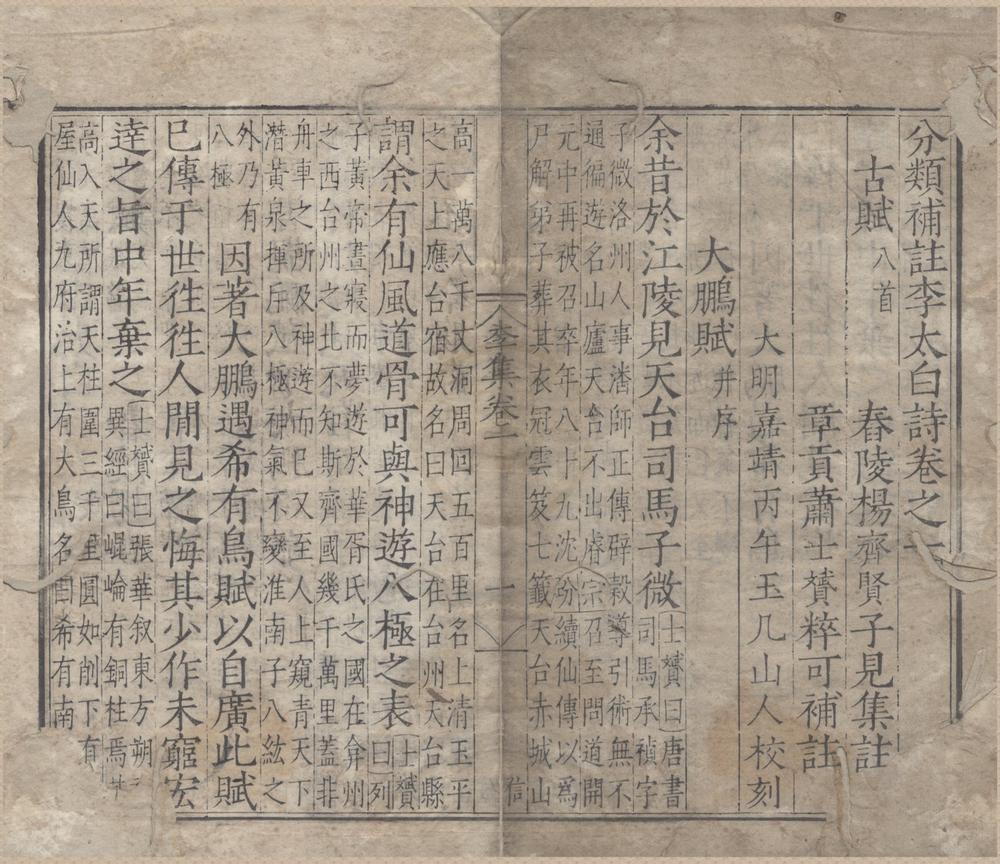 分類補註李太白詩卷之一
古賦八首
舂陵楊齊賢子見集註
章貢蕭士贇粹可補註
大明嘉靖丙午玉几山人校刻
大鵬賦并序
余昔於江陵見天台司馬子微
士贇曰唐書司馬承禎字
子微洛州人事潘師正傳辟穀導引術無不
通徧遊名山廬天台不出睿宗召至問道開
元中再被召卒年八十九沈汾續仙傳以爲
尸解弟子葬其衣冠雲笈七籤天台赤城山
信
李集卷一
一
高一萬八千丈洞周回五百里名上清玉平
之天上應台宿故名曰天台在台州天台縣
謂余有仙風道骨可與神遊八極之表
士贇曰列
子黃帝晝寢而夢遊於華胥氏之國在弇州
之西台州之北不知斯齊國幾千萬里蓋非
舟車之所及神遊而已又至人上窺青天下
潛黃泉揮斥八極神氣不變淮南子八紘之
外乃有八極
因著大鵬遇希有鳥賦以自廣此賦
已傳于世徃徃人間見之悔其少作未窮宏
達之旨中年棄之
士贇曰張華叙東方朔
異經曰崐崘有銅柱焉其
高入天所謂天柱圍三千里圓如削下有
屋仙人九府治上有大鳥名曰希有南